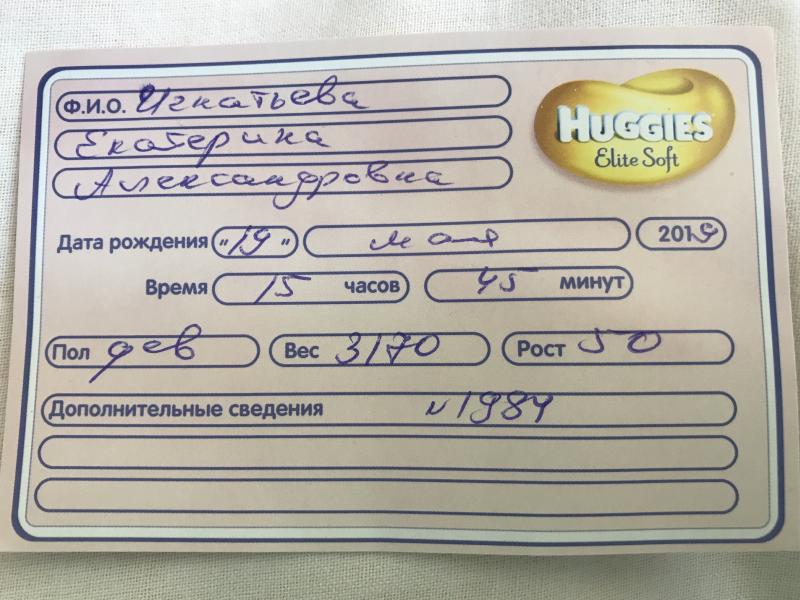 Ф.И.О. Игнатьева
HUGGIES
Екатерина
Elite Soft
Александровна
Дата рождения "19" мая 2019
Время 15 часов 45 минут
Пол дев Вес 3170 Рост 50
Дополнительные сведения N1984